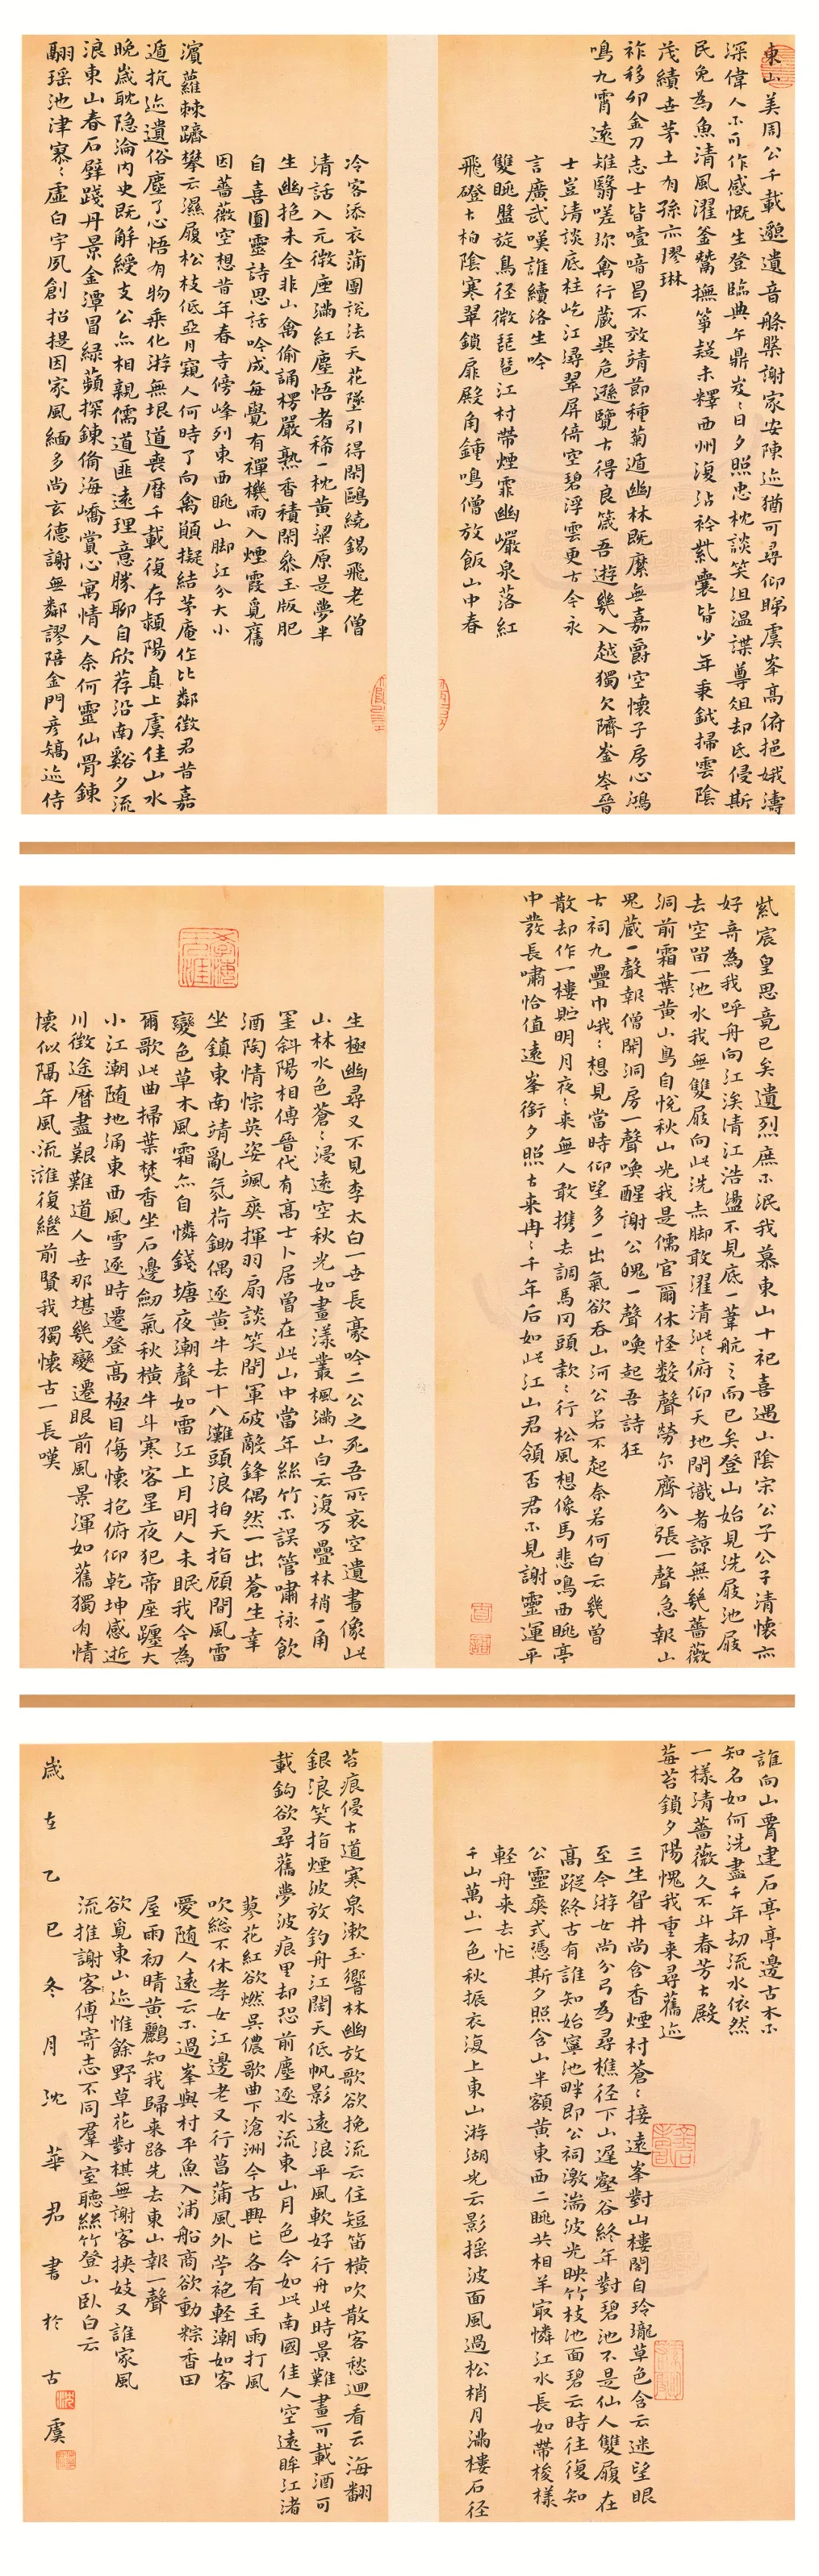 東山美周公千載邈遺音槃槃謝家安陳迹猶可尋仰睇虞峯高俯挹娥濤
深偉人不可作感慨生登臨典午鼎岌岌日夕照忠枕談笑沮温謀尊俎却氐侵斯
民免為魚清風濯釜鬵撫箏疑未釋西州淚沾衿紫囊皆少年秉鉞掃雲陰
茂績世茅土有孫亦璆琳
祚移卯金刀志士皆噎喑昌不效靖節種菊遁幽林既縻無嘉爵空懷子房心鴻
鳴九霄遠雉翳嗟珎禽行蔵異危遜覽古得良箴吾遊幾入越獨欠隮崟岑晉
士豈清談底柱屹江潯翠屏倚空碧浮雲更古今永
言廣武嘆誰續洛生吟
雙眺盤旋鳥径微琵琶江村帶煙霏幽巖泉落紅
飛磴古柏陰寒翠鎖扉殿角鍾鳴僧放飯山中春
冷客添衣蒲團說法天花墜引得閑鷗繞錫飛老僧
清話入元微座滿紅塵悟者稀一枕黄粱原是夢半
生幽抱未全非山禽偷誦楞嚴熟香積閑叅玉版肥
自喜圓靈詩思話吟成每覺有禪機雨入煙霞覓舊
因薔薇空想昔年春寺傍峰列東西眺山脚江分大小
濱蘿棘躋攀云濕履松枝低亞月窺人何時了向禽願擬結茅庵作比鄰徵君昔嘉
遁抗迹遺俗塵了心悟有物乘化游無垠道喪曆千載復存頴陽真上虞佳山水
晚歲耽隐淪内史既解綬支公亦相親儒道匪遠理意勝聊自欣荐沿南谿夕流
浪東山春石壁踐丹景金潭冒緑蘋探錬偷海嶠賞心寓情人奈何靈仙骨錬
翮瑶池津寥寥虚白宇夙創招提因家風緬多尚玄德謝無鄰謬陪金門彦矯迹侍
紫宸皇思竟已矣遺烈庶不泯我慕東山十祀喜遇山陰宋公子公子清懷亦
好竒為我呼舟向江涘清江浩盪不見底一葦航之而已矣登山始見洗屐池屐
去空留一池水我無雙屐向此洗赤脚敢濯清泚泚俯仰天地間識者諒無幾薔薇
洞前霜葉黄山鳥自悅秋山光我是儒官爾休怪数聲勞尔齊分張一聲急報山
鬼蔵一聲報僧開洞房一聲喚醒謝公魄一聲喚起吾詩狂
古祠九疊巾峨峨想見當時仰望多一出氣欲吞山河公若不起奈若何白云幾曾
散却作一樓貯明月夜夜来無人敢携去調馬冈頭欵欵行松風想像馬悲鳴西眺亭
中發長嘯恰值遠峯銜夕照古来冉冉千年后如此江山君領否君不見謝靈運平
生極幽尋又不見李太白一世長豪吟二公之死吾所哀空遺畫像此
山林水色蒼蒼浸遠空秋光如畫漾叢楓滿山白云復万疊林梢一角
罣斜陽相傳晉代有高士卜居曾在此山中當年絲竹不誤管嘯詠飲
酒陶情悰英姿颯爽揮羽扇談笑間軍破敵鋒偶然一出蒼生幸
坐鎮東南靖亂氛荷鋤偶逐黄牛去十八灘頭浪拍天指顧間風雷
變色草木風霜亦自憐錢塘夜潮聲如雷江上月明人未眠我今為
爾歌此曲掃葉焚香坐石邊劒氣秋横牛斗寒客星夜犯帝座躔大
小江潮随地涌東西風雪逐時遷登高極目傷懷抱俯仰乾坤感逝
川徵途曆盡艱難道人世那堪幾變遷眼前風景渾如舊獨有情
懷似隔年風流誰復繼前賢我獨懷古一長嘆
誰向山胥建石亭亭邊古木不
知名如何洗盡千年刧流水依然
一樣清薔薇久不斗春芳古殿
莓苔鎖夕陽愧我重来尋舊迹
三生眢井尚含香煙村蒼蒼接遠峯對山樓閣自玲瓏草色含云迷望眼
至今游女尚分弓為尋樵径下山遲壑谷終年對碧池不是仙人雙履在
高蹤終古有誰知始寧池畔即公祠激湍波光映竹枝池面碧云時往復知
公靈爽式憑斯夕照含山半額黄東西二眺共相羊㝡憐江水長如帶梭樣
軽舟来去忙
千山萬山一色秋振衣復上東山游湖光云影揺波面風過松梢月滿樓石径
苔痕侵古道寒泉漱玉響林幽放歌欲挽流云住短笛横吹散客愁迴看云海翻
銀浪笑指煙波放釣舟江闊天低帆影遠浪平風軟好行舟此時景難畫可載酒可
載鈎欲尋舊夢波痕里却恐前塵逐水流東山月色今如此南國佳人空遠眸江渚
蓼花紅欲燃吳儂歌曲下滄洲今古興亡各有主雨打風
吹総不休孝女江邊老又行菖蒲風外苧袍軽潮如客
愛随人遠云不過峯與村平魚入浦船商欲動粽香田
屋雨初晴黄鸝知我歸来路先去東山報一聲
欲覓東山迹惟餘野草花對棋無謝客挟妓又誰家風
流推謝客傅寄志不同羣入室聽絲竹登山臥白云
歲在乙巳冬月沈華君書於古虞